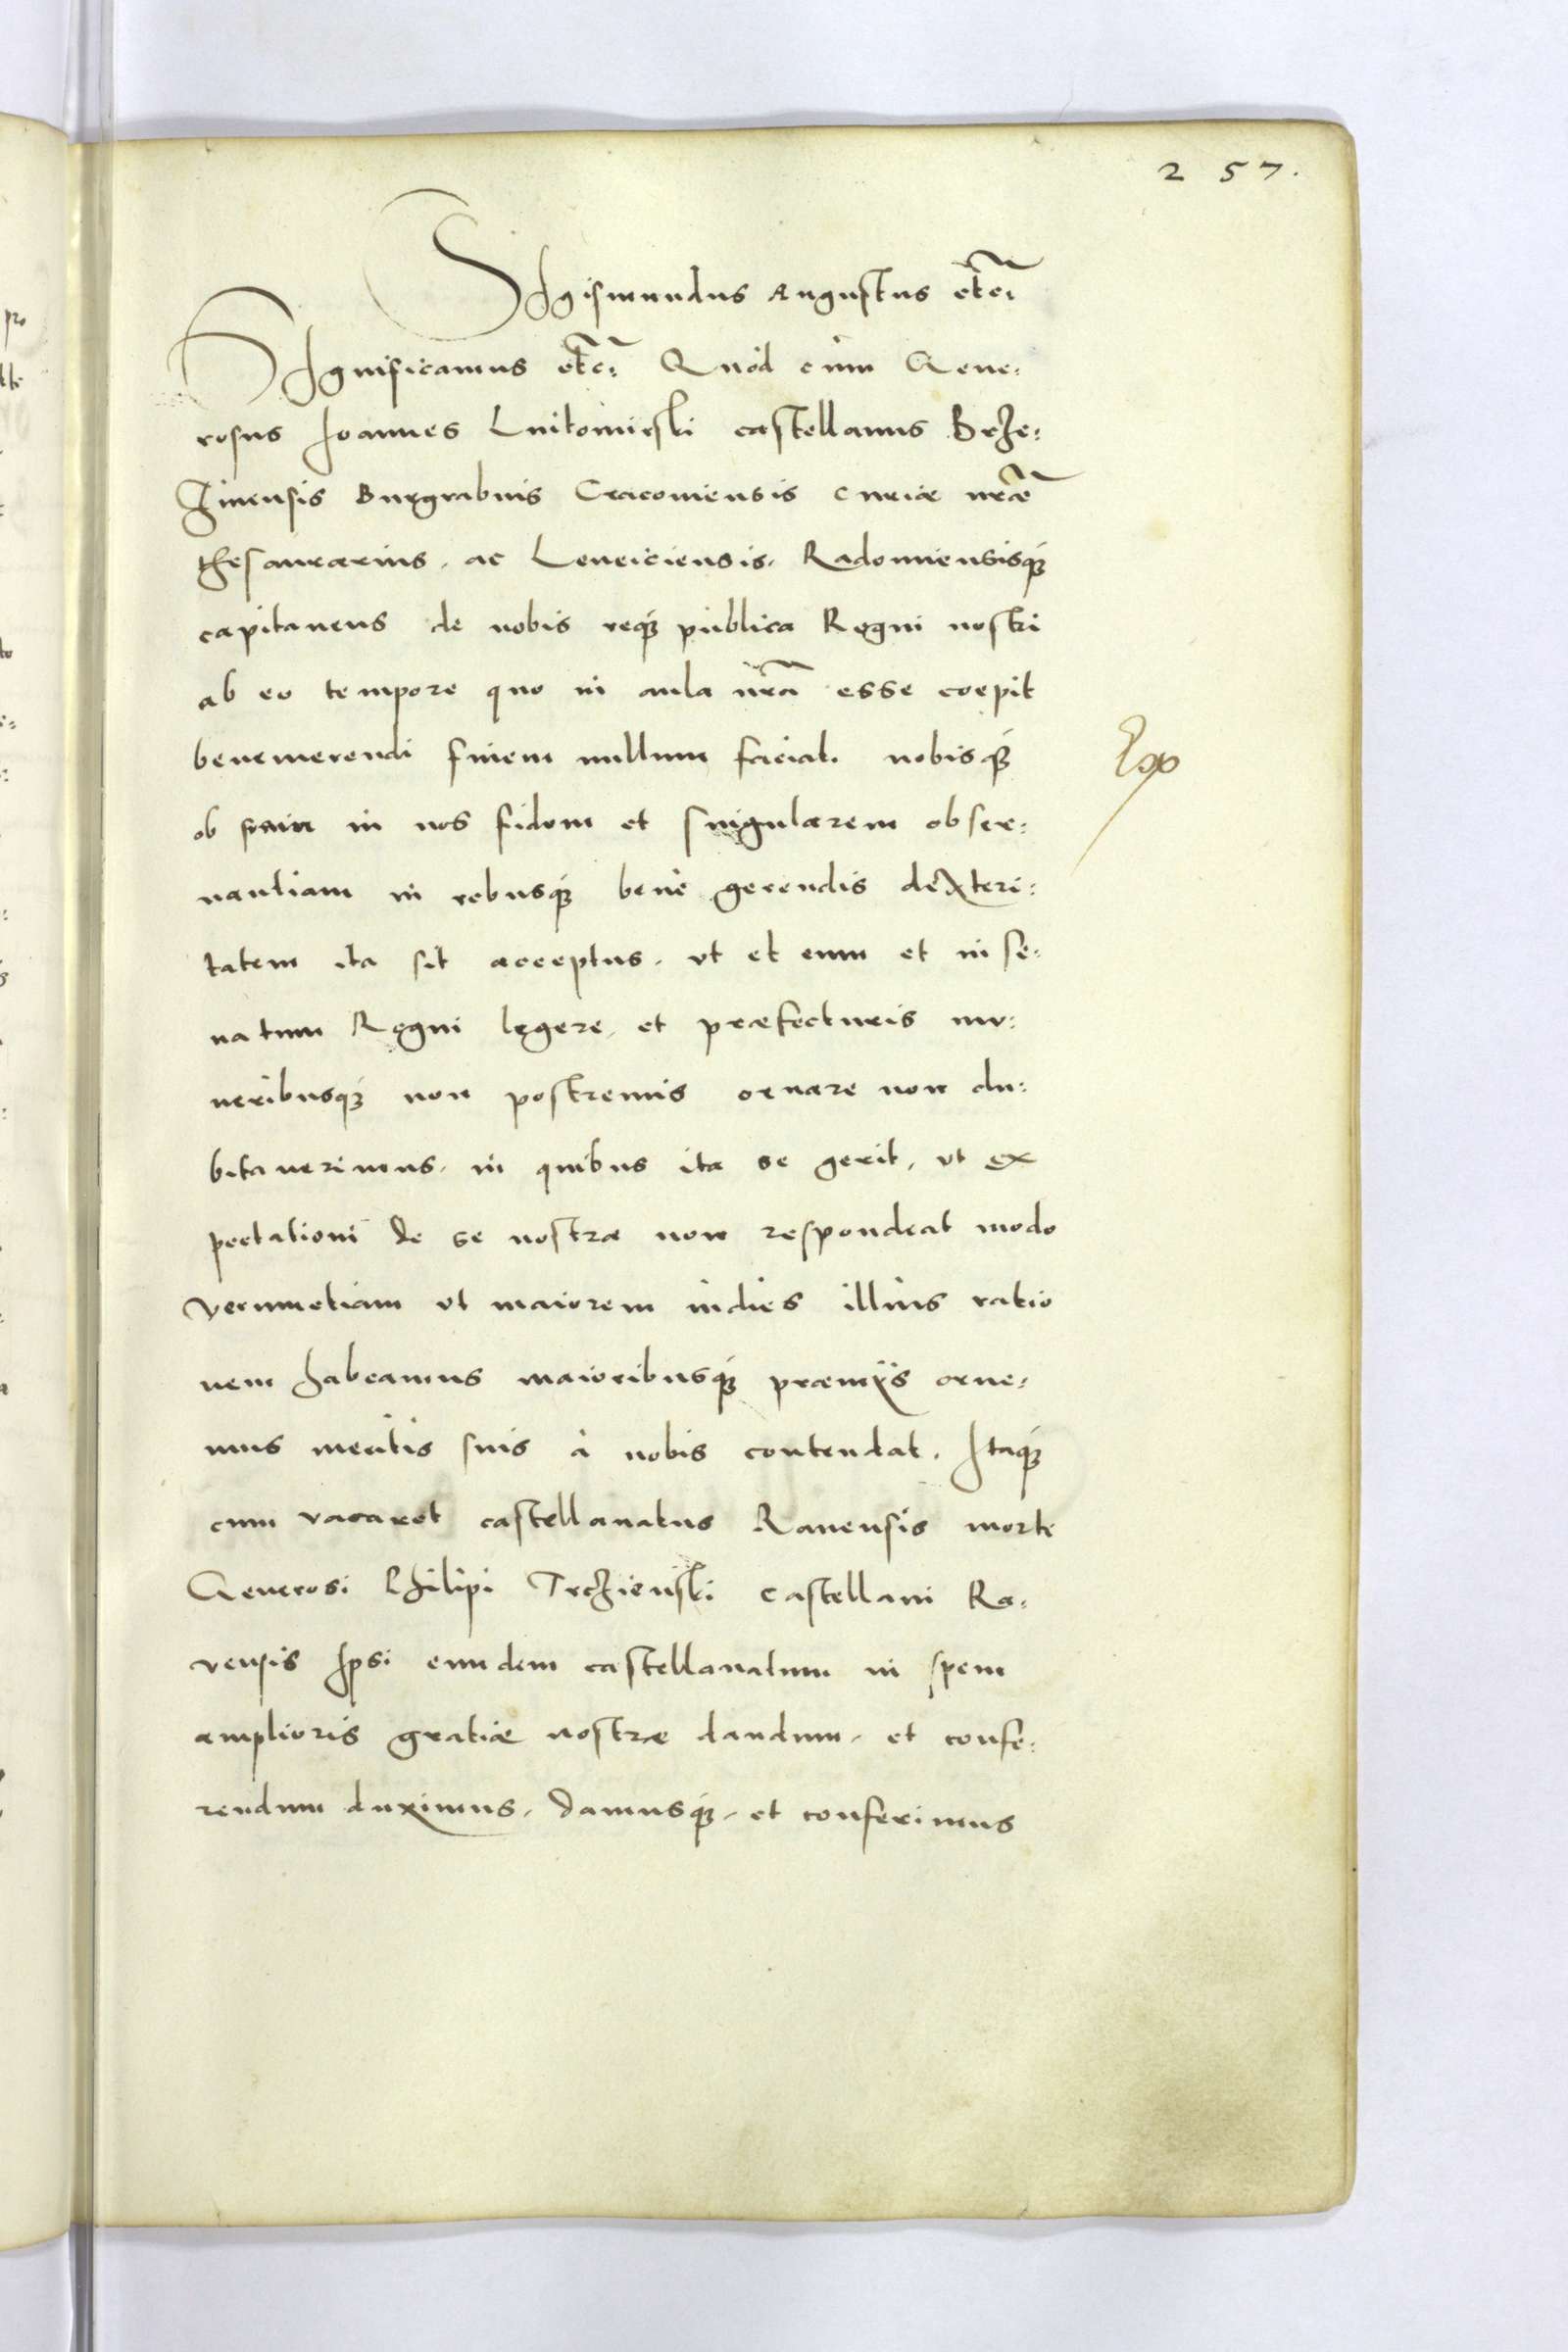 257.
Sigismundus Augustus etc:
Significamus etc: Quòd cùm Gene:
rosus Ioannes Lutomirski castellanus Brze:
zinensis Burgrabius Cracoviensis curiæ nr̃æ
thesaurarius, ac Lenciciensis, Radomiensisq́;
capitaneus de nobis req́; publica Regni nostri
ab eo tempore quo in aula nr̃a esse coepit
benemerendi finem nullum faciat. nobisq́;
ob in nos fidem et singularem obser:
uantiam in rebusq́; benè gerendis dexteri:
tatem ita sit acceptus, vt et eum et in se:
natum Regni legere, et præfecturis mu:
neribusq́; non postremis ornare non du:
bitauerimus, in quibus ita se gerit, vt ex
pectationi de se nostræ non respondeat modo
verumetiam vt maiorem indies illius ratio
nem habeamus maioribusq́; præmijs orne:
mus meritis suis à nobis contendat. Itaq́;
cum vacaret castellanatus Rauensis morte
Generosi Philipi Trczienski castellani Ra:
vensis Ipsi eundem castellanatum in spem
amplioris gratiæ nostræ dandum, et confe:
rendum duximus, damusq́;, et conferimus